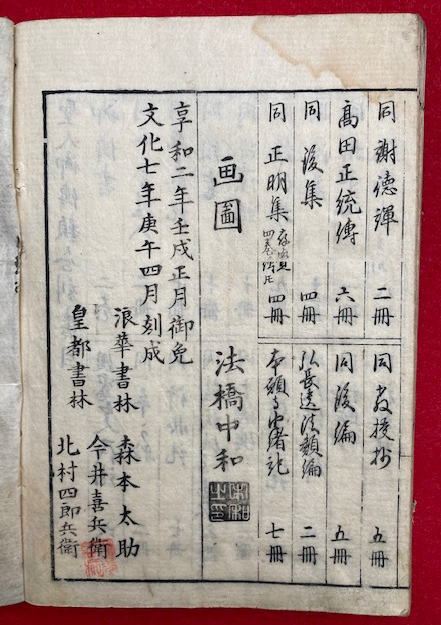 同 謝德講 二冊
高田正統傳 六冊
同 後集 四冊
同 正明集 四冊
同 教授抄 五冊
同後編 五冊
弘長遺法類編 二冊
本願寺由緒記 七冊
画圖 法橋中和
享和二年壬戌正月御免
文化七年庚午四月刻成
浪華書林 森本太助
今井喜兵衛
皇都書林 北村四郎兵衛